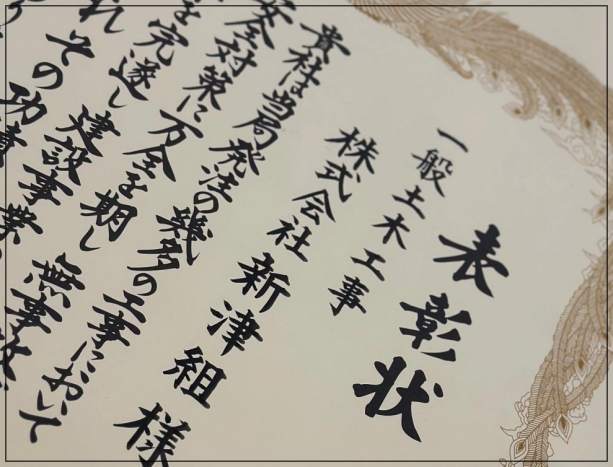 表彰状
一般土木工事
株式会社新津組様
貴社は当局発注の幾多の工事において
安全対策に万全を期し無事故
を完遂し建設事業
れ
その功績